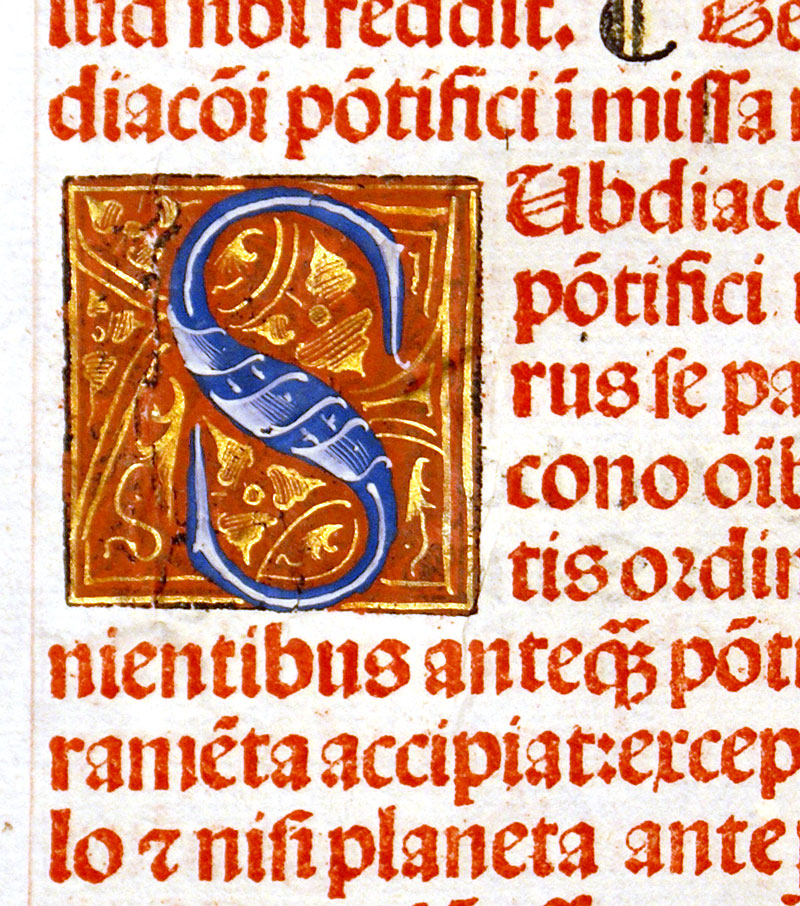 diacōi pōtifici ī miſſa
S Ubdiaco
pōtifici
rus ſe pa
cono oīb
tis oꝛdin
nientibus anteq̄ꝫ pōti
ramēta accipiat: excep
lo ⁊ niſi planeta ante